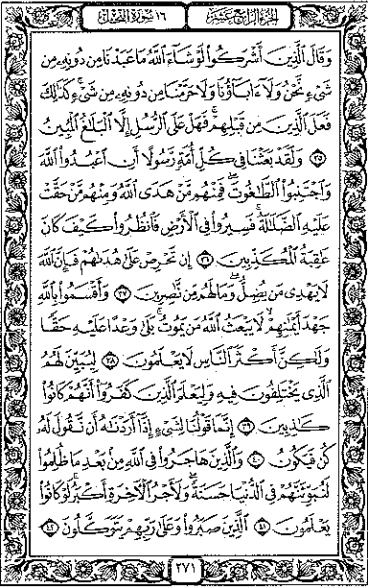 الجزء الرابع عشر ١٦ سورة النحل
وَقَالَ الَّذِينَ أَشْرَكُوا لَوْ شَاءَ اللَّهُ مَا عَبَدْنَا مِن دُونِهِ مِن
شَيْءٍ نَّحْنُ وَلَا آبَاؤُنَا وَلَا حَرَّمْنَا مِن دُونِهِ مِن شَيْءٍ كَذَٰلِكَ
فَعَلَ الَّذِينَ مِن قَبْلِهِمْ فَهَلْ عَلَى الرُّسُلِ إِلَّا الْبَلَاغُ الْمُبِينُ
٣٥ وَلَقَدْ بَعَثْنَا فِي كُلِّ أُمَّةٍ رَّسُولًا أَنِ اعْبُدُوا اللَّهَ
وَاجْتَنِبُوا الطَّاغُوتَ فَمِنْهُم مَّنْ هَدَى اللَّهُ وَمِنْهُم مَّنْ حَقَّتْ
عَلَيْهِ الضَّلَالَةُ فَسِيرُوا فِي الْأَرْضِ فَانظُرُوا كَيْفَ كَانَ
عَاقِبَةُ الْمُكَذِّبِينَ ٣٦ إِن تَحْرِصْ عَلَىٰ هُدَاهُمْ فَإِنَّ اللَّهَ
لَا يَهْدِي مَن يُضِلُّ وَمَا لَهُم مِّن نَّاصِرِينَ ٣٧ وَأَقْسَمُوا بِاللَّهِ
جَهْدَ أَيْمَانِهِمْ لَا يَبْعَثُ اللَّهُ مَن يَمُوتُ بَلَىٰ وَعْدًا عَلَيْهِ حَقًّا
وَلَٰكِنَّ أَكْثَرَ النَّاسِ لَا يَعْلَمُونَ ٣٨ لِيُبَيِّنَ لَهُمُ
الَّذِي يَخْتَلِفُونَ فِيهِ وَلِيَعْلَمَ الَّذِينَ كَفَرُوا أَنَّهُمْ كَانُوا
كَاذِبِينَ ٣٩ إِنَّمَا قَوْلُنَا لِشَيْءٍ إِذَا أَرَدْنَاهُ أَن نَّقُولَ لَهُ
كُن فَيَكُونُ ٤٠ وَالَّذِينَ هَاجَرُوا فِي اللَّهِ مِن بَعْدِ مَا ظُلِمُوا
لَنُبَوِّئَنَّهُمْ فِي الدُّنْيَا حَسَنَةً وَلَأَجْرُ الْآخِرَةِ أَكْبَرُ لَوْ كَانُوا
يَعْلَمُونَ ٤١ الَّذِينَ صَبَرُوا وَعَلَىٰ رَبِّهِمْ يَتَوَكَّلُونَ ٤٢
٢٧١